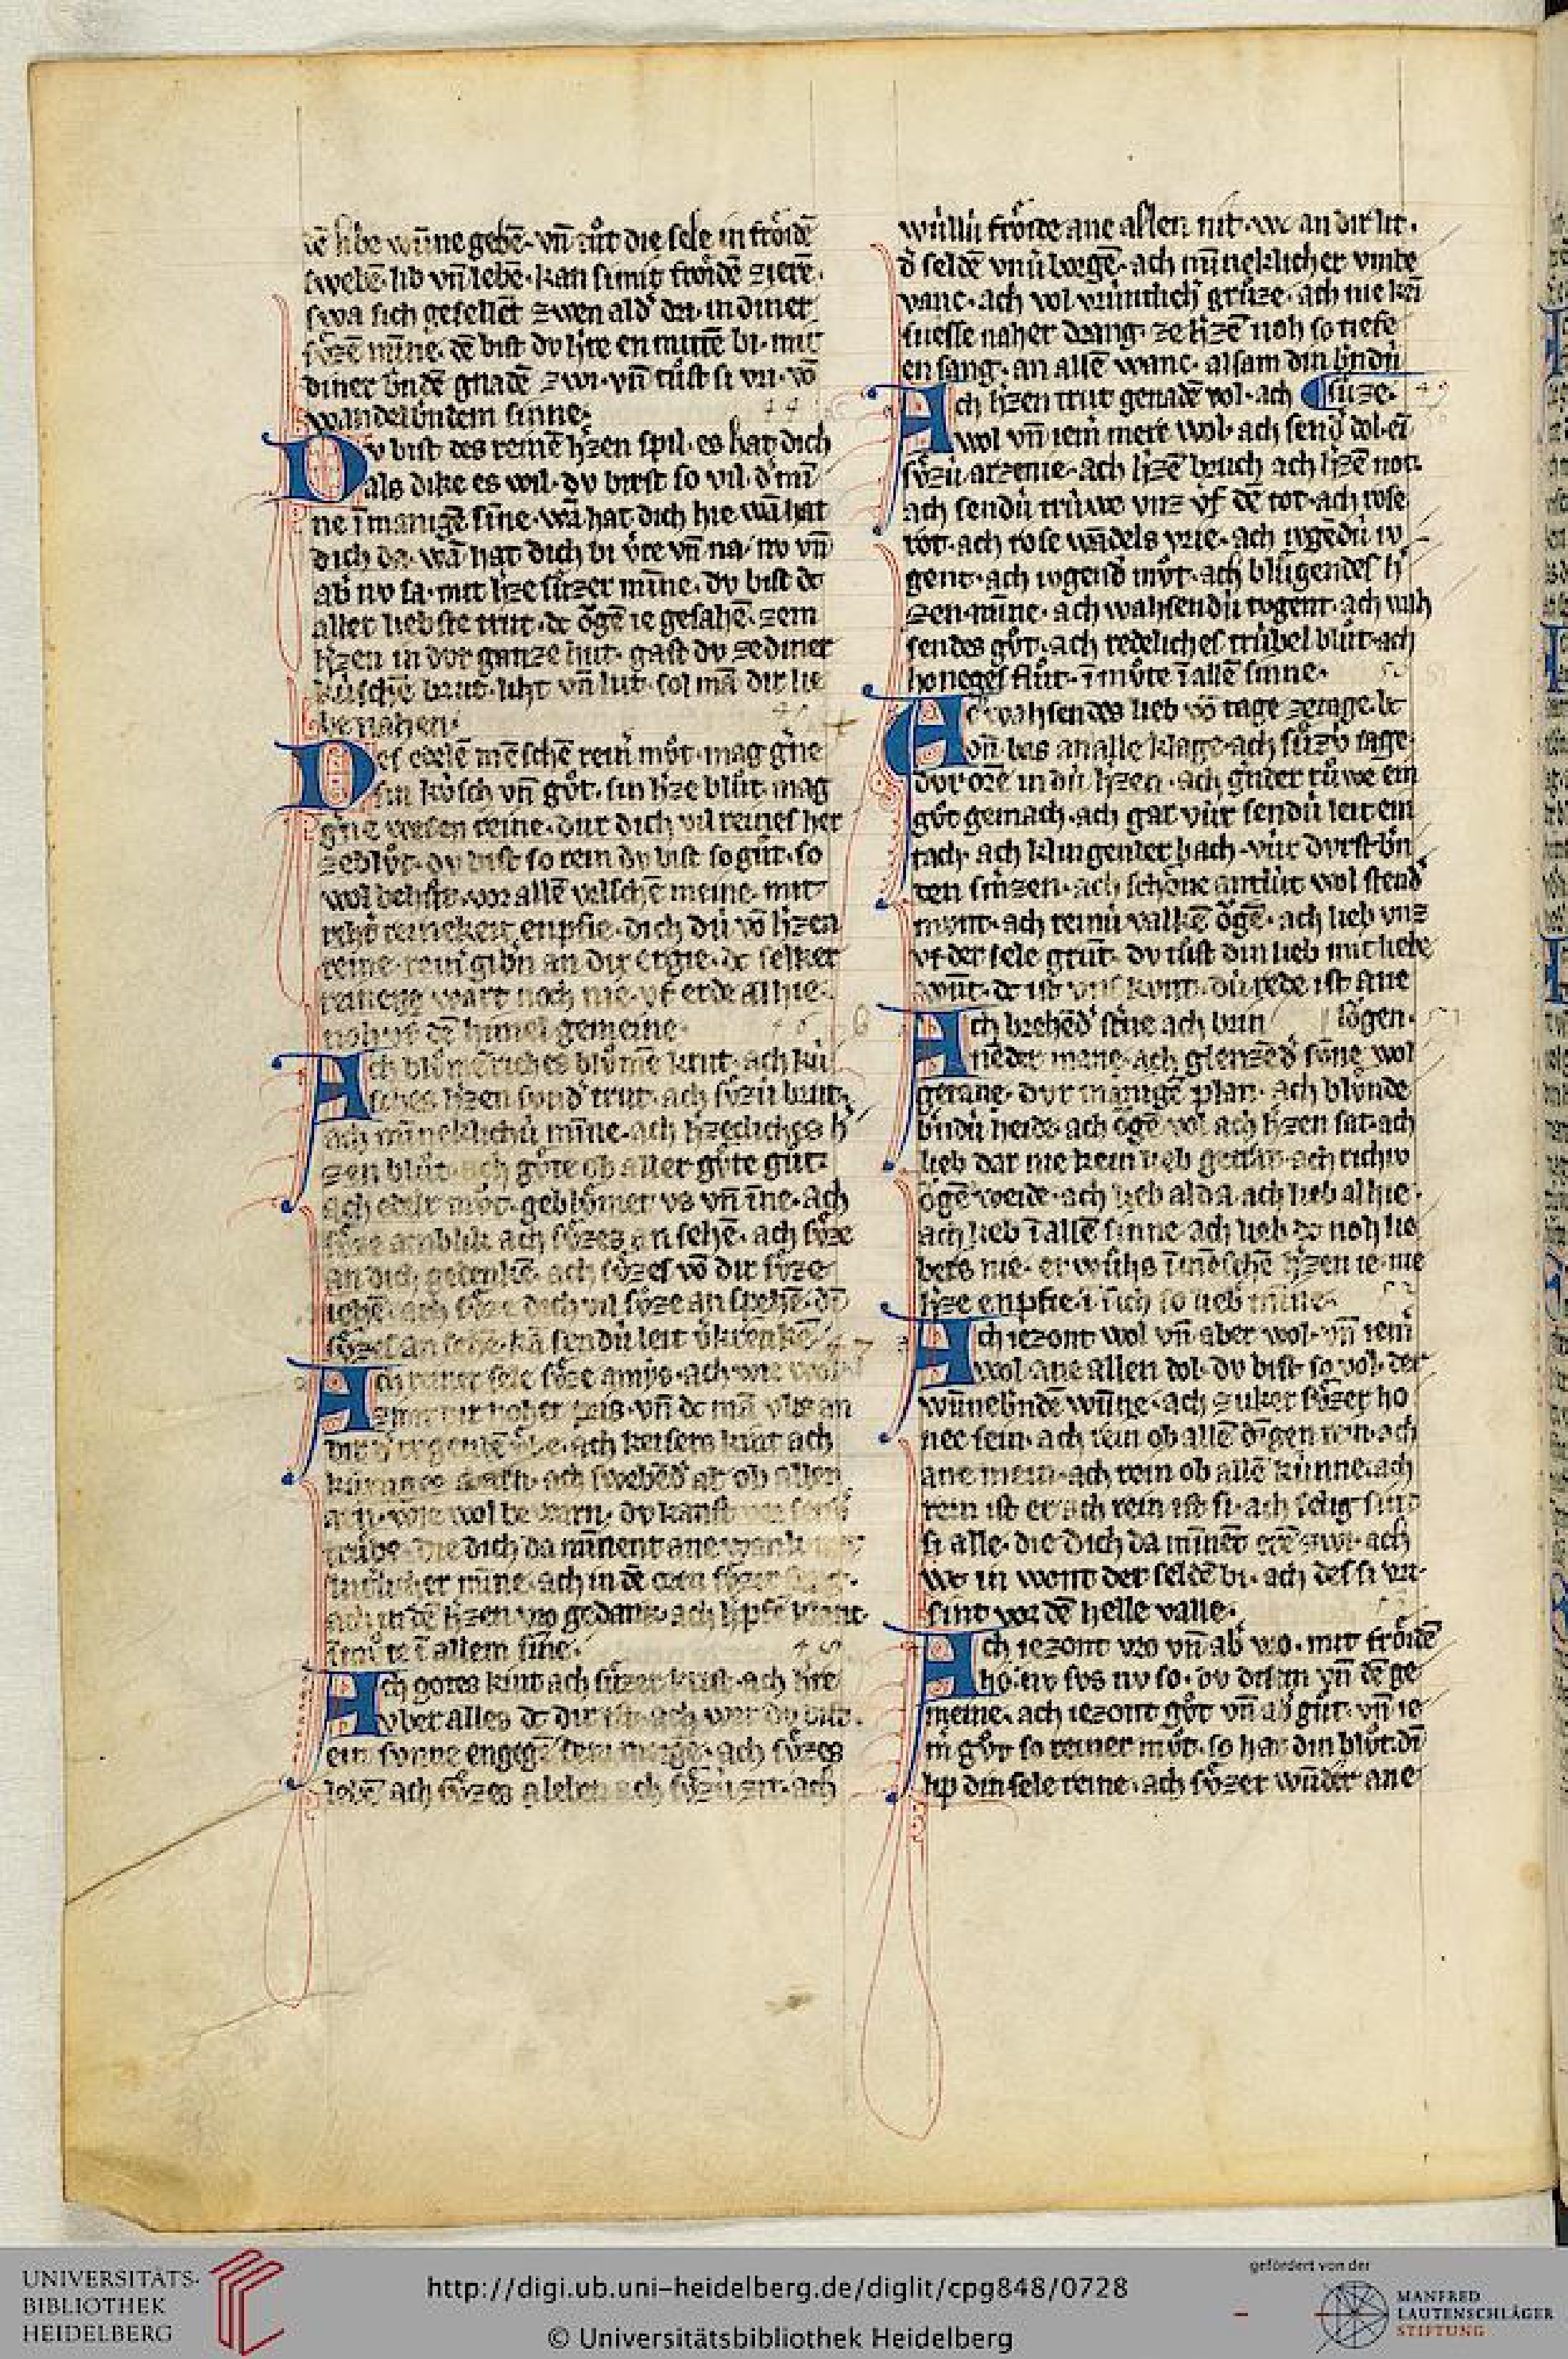 dē libe wūne gebē· vn̄ tůt die sele in frŏidē
swebē· lib vn̄ lebē· kan si mit frŏidē zierē·
swa sich gesellēt zwen ald dri· in diner
sůzē mīne· dē bist dv h̄re en mittē bi· mit
diner bndē gnadē zwi· vn̄ tůst si vri· vō
wandelbndem sinne·
44
Dv bist des reinē h̄zen spil· es hat dich
als dike es wil· dv birst so vil· d mī
ne ī manigē sīne· wā hat dich hie wā hat
dich da· wā hat dich bi v̊re vn̄ na· nv vn̄
ab nv sa· mit h̄ze sůzer mīne· dv bist dc
aller liebste trut· dc ŏgē ie gesahē· zem
h̄zen in dvr ganze hut· gast dv ze diner
kůschē brut· liht vn̄ lut· sol mā dir lie
be nahen·
Des edelē mēschē rein mv̊t· mag gne
sin kv̇sch vn̄ gv̊t· sin h̄ze blůt· mag
gne wesen reine· dur dich vil reines her
zeblůt· dv bist so rein dv bist so gůt· so
wol behůt· vor allē valschē meine· mit
reht reinekeit enpfie· dich dú vō h̄zen
reine· rein gibn an dir ergie· dc selker
reinegs wart noch nie· vf erde alhie·
noh vf dē himel gemeine·
Ach blůmeriches blůmē krut· ach kú
sches h̄zen sund trut· ach sv̊zú brut·
ach mīneklichú mīne· ach h̄zecliches h
zen blůt· ach gv̊te ob aller gv̊te gůt·
ach edelr mv̊t· geblůmet vs vn̄ īne· ach
sv̊ze anblik ach sv̊zes an sehē· ach sv̊ze
an dich gedenkē· ach sv̊zes vō dir sv̊ze
iehē· ach sv̊ze dich vil sv̊ze an spehē· dī
sv̊zes an sehē· kā sendú leit v̄krenkē
47
Ach reiner sele sv̊ze amys· ach wie wol
zimt dir hoher pris· vn̄ dc mā vlis an
dir
kúniges barn· ach swebēd ar ob allen
arn· wie wol bewarn· dv kanst
trúbe· die dich da mīnent ane wank mit
mīne· ach in dē oren sv̊zer sang·
ach in dē h̄zen vro gedank·
ī mv̊te ī allem sīne·
48
Ach gotes kint ach sůzer krist· ach h̄re
vber alles dc dir ist· ach wer dv bist·
ein sunne engegē dem morgē· ach sv̊zes
lobē ach sv̊zes a leben ach sv̊zú zit· ach
wúllú frŏide ane allen nit· wc an dir lit·
d seldē vnv̄borgē· ach mīneklicher vmbe
vanc· ach vol vrúntlich grůze· ach nie kei
suesse naher drang· ze h̄zē noh so tiefe
en sang· an allē wanc· alsam din bndú
sůze· 49
Ach h̄zen trut genadē vol· ach
wol vn̄ iem mere wol· ach send dol· ei
sv̊zú arzenie· ach h̄zē bruch ach h̄zē not·
ach sendú trúwe vnz vf dē tot· ach rose
rot· ach rose wādels vrie· ach iugēdú iu
gent· ach iugend mv̊t· ach blůgendes h
zen mīne· ach wahsendú tvgent· ach wah
sendes gv̊t· ach redeliches trúbel blůt· ach
honeges flůt· ī mv̊te ī allē sinne·
Ach wahsendes lieb vō tage ze tage· bc
on· bas an alle klage· ach sůzv sage·
dvr ore in dú h̄zen· ach gůder rúwe ein
gv̊t gemach· ach gar vúr sendú leit ein
tach· ach klingender bach· vúr dvrst bn
ten smzen· ach schŏne antlút wol stend
mvnt· ach reinú valkē ŏgē· ach lieb vnz
vf der sele grūt· dv tůst din lieb mit liebe
wūt· dc ist vns kvnt· dú rede ist ane
lŏgen·
Ach brehēd stne ach brin
neder mane· ach glenzēd sūne wol
getane· dvr manigē plan· ach blůnde
bndú heide· ach ŏgē wol ach h̄zen sat· ach
lieb dar nie kein lieb getrat· ach richiv
ŏgē weide· ach lieb al da· ach lieb al hie·
ach lieb ī allē sinne· ach lieb dc noh lie
bers nie· er wůhs ī mēschē h̄zen ie· nie
h̄ze enpfie· ī sich so lieb mīne·
Ach iezont wol vn̄ aber wol· vn̄ iem
wol ane allen dol· dv bist so vol· der
wūnebndē wūne· ach zuker sv̊zer ho
nec sein· ach rein ob allē dīgen rein· ach
ane mein· ach rein ob allē kúnne· ach
rein ist er ach rein ist si· ach selig sint
si alle· die dich da mīnēt
we in wont der seldē bi· ach des si vri·
sint vor dē helle valle·
Ach iezont wo vn̄ ab wo· mit frŏiden
ho· nv svs nv so· dv drian vn̄ dē ge
meine· ach iezont gv̊t vn̄ ab gůt· vn̄ ie
m gv̊t so reiner mv̊t· so hat din blůt· dī
lip din sele reine· ach sv̊zer wūder ane
UNIVERSITÄTS-
BIBLIOTHEK
HEIDELBERG
http://digi.ub.uni-heidelberg.de/diglit/cpg848/0728
© Universitätsbibliothek Heidelberg
gefördert von der
MANFRED
LAUTENSCHLÄGER
STIFTUNG